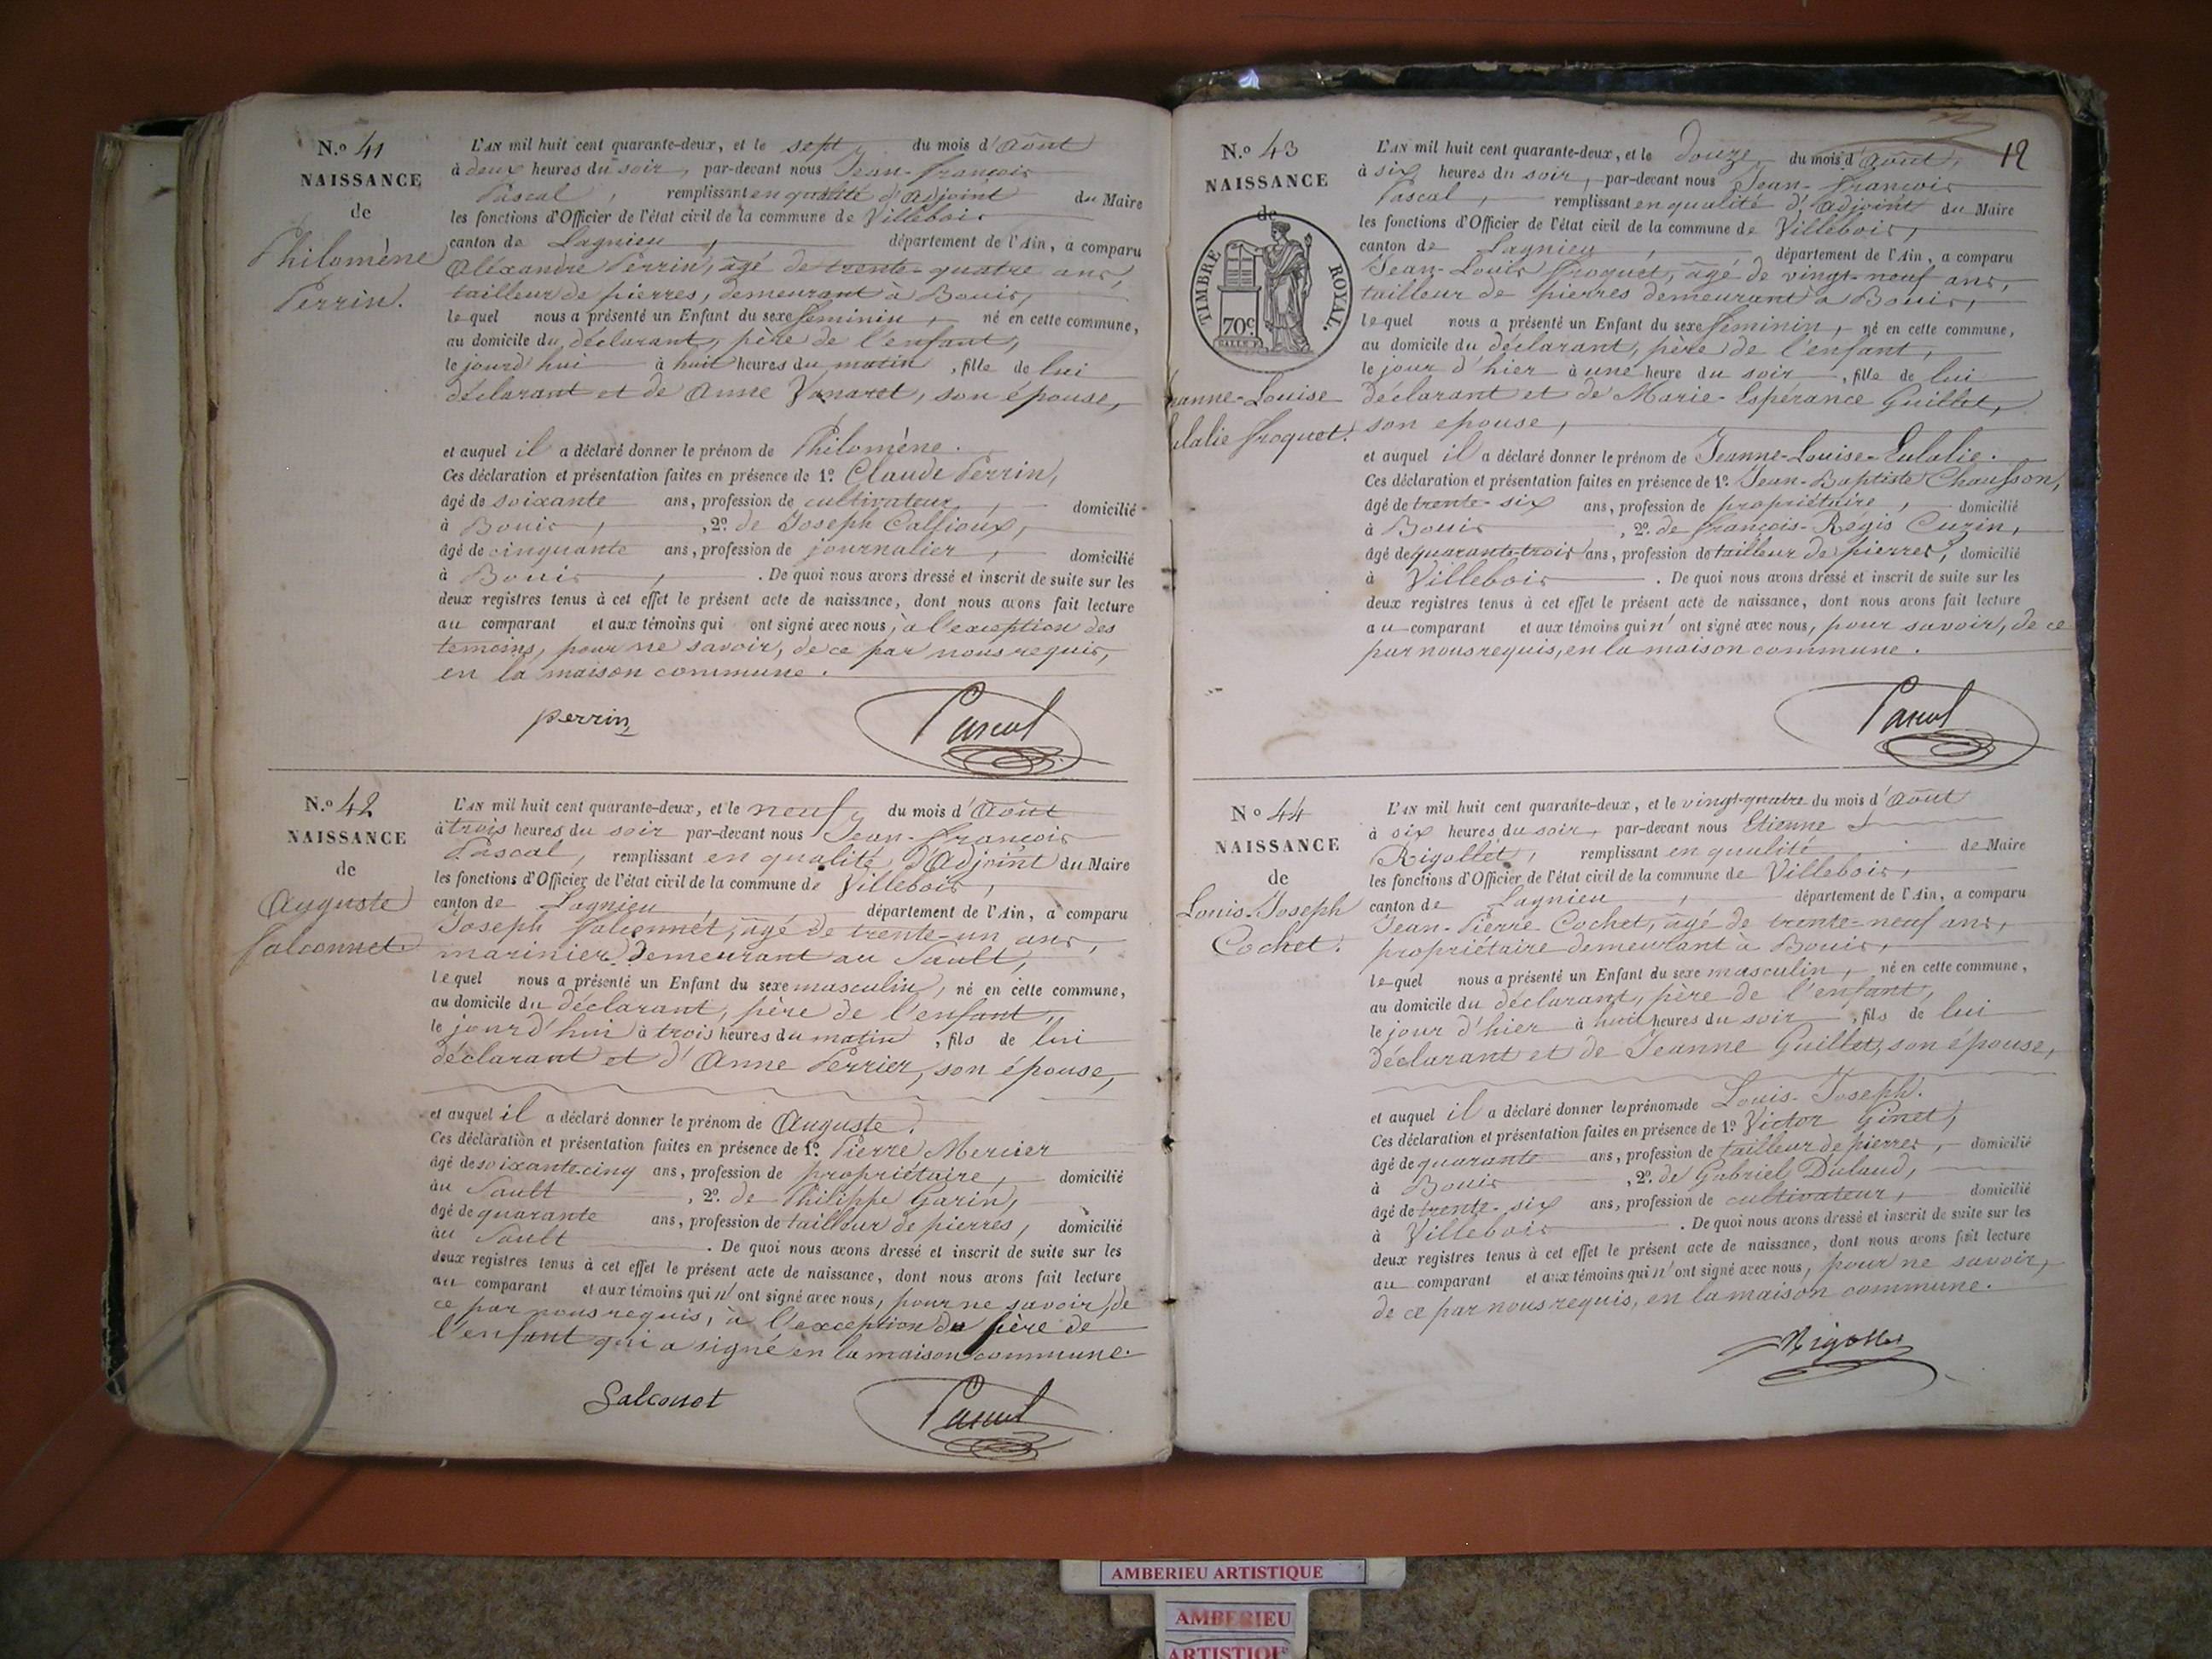 N.o 41
NAISSANCE
de
Philomène
Perrin.
L'AN mil huit cent quarante-deux, et le sept du mois d'Août
à deux heures du soir, par-devant nous Jean-François
Pascal, remplissant en qualité d'Adjoint du Maire
les fonctions d'Officier de l'état civil de la commune de Villebois
canton de Lagnieu, département de l'Ain, a comparu
Aléxandre Perrin, âgé de trente-quatre ans,
tailleur de pierres, demeurant à Bouis,
lequel nous a présenté un Enfant du sexe féminin, né en cette commune,
au domicile du déclarant, père de l'enfant,
le jourd'hui à huit heures du matin, fille de lui
déclarant et de Anne Vanaret, son épouse,
et auquel il a déclaré donner le prénom de Philomène.
Ces déclaration et présentation faites en présence de 1.o Claude Perrin,
âgé de soixante ans, profession de cultivateur, domicilié
à Bouis, 2.o de Joseph Calfioux,
âgé de cinquante ans, profession de journalier, domicilié
à Bouis, . De quoi nous avons dressé et inscrit de suite sur les
deux registres tenus à cet effet le présent acte de naissance, dont nous avons fait lecture
au comparant et aux témoins qui ont signé avec nous, à l'exception des
temoins, pour ne savoir, de ce par nous requis,
en la maison commune.
perrin Pascal
N.o 42
NAISSANCE
de
Auguste
Falconnet
L'AN mil huit cent quarante-deux, et le neuf du mois d'Août
à trois heures du soir par-devant nous Jean-François
Pascal, remplissant en qualité d'Adjoint du Maire
les fonctions d'Officier de l'état civil de la commune de Villebois,
canton de Lagnieu, département de l'Ain, a comparu
Joseph Falconnet, âgé de trente-un ans,
marinier demeurant au Sault,
lequel nous a présenté un Enfant du sexe masculin, né en cette commune,
au domicile du déclarant, père de l'enfant,
le jourd'hui à trois heures du matin, fils de lui
déclarant et d'Anne Perrier, son épouse,
et auquel il a déclaré donner le prénom de Auguste.
Ces déclaration et présentation faites en présence de 1.o Pierre Mercier
âgé de soixante-cinq ans, profession de propriétaire, domicilié
au Sault, 2.o de Philippe Garin,
âgé de quarante ans, profession de tailleur de pierres, domicilié
au Sault . De quoi nous avons dressé et inscrit de suite sur les
deux registres tenus à cet effet le présent acte de naissance, dont nous avons fait lecture
au comparant et aux témoins qui n'ont signé avec nous, pour ne savoir, de
ce par nous requis, à l'exception du père de
l'enfant qui a signé en la maison commune.
Falconet Pascal
12
N.o 43
NAISSANCE
de
TIMBRE ROYAL.
70c.
anne-Louise
ulalie Froquet.
L'AN mil huit cent quarante-deux, et le douze du mois d'Août,
à six heures du soir, par-devant nous Jean-François
Pascal, remplissant en qualité d'Adjoint du Maire
les fonctions d'Officier de l'état civil de la commune de Villebois,
canton de Lagnieu, département de l'Ain, a comparu
Jean-Louis Froquet, âgé de vingt-neuf ans,
tailleur de pierres demeurant à Bouis,
lequel nous a présenté un Enfant du sexe féminin, né en cette commune,
au domicile du déclarant, père de l'enfant,
le jour d'hier à une heure du soir, fille de lui
déclarant et de Marie-Espérance Guillet,
son epouse,
et auquel il a déclaré donner le prénom de Jeanne-Louise-Eulalie.
Ces déclaration et présentation faites en présence de 1.o Jean-Baptiste Chausson,
âgé de trente-six ans, profession de propriétaire, domicilié
à Bouis, 2.o de François-Régis Cuzin,
âgé de quarante-trois ans, profession de tailleur de pierres, domicilié
à Villebois . De quoi nous avons dressé et inscrit de suite sur les
deux registres tenus à cet effet le présent acte de naissance, dont nous avons fait lecture
au comparant et aux témoins qui n'ont signé avec nous, pour savoir, de ce
par nous requis, en la maison commune.
Pascal
N.o 44
NAISSANCE
de
Louis-Joseph
Cochet.
L'AN mil huit cent quarante-deux, et le vingt-quatre du mois d'Août
à six heures du soir, par-devant nous Etienne
Rigollet, remplissant en qualité de Maire
les fonctions d'Officier de l'état civil de la commune de Villebois,
canton de Lagnieu, département de l'Ain, a comparu
Jean-Pierre Cochet, âgé de trente-neuf ans,
propriétaire demeurant à Bouis,
lequel nous a présenté un Enfant du sexe masculin, né en cette commune,
au domicile du déclarant, père de l'enfant,
le jour d'hier à huit heures du soir, fils de lui
déclarant et de Jeanne Guillet, son épouse,
et auquel il a déclaré donner les prénoms de Louis-Joseph.
Ces déclaration et présentation faites en présence de 1.o Victor Ginet,
âgé de quarante ans, profession de tailleur de pierres, domicilié
à Bouis, 2.o de Gabriel Dulaud,
âgé de trente-six ans, profession de cultivateur, domicilié
à Villebois . De quoi nous avons dressé et inscrit de suite sur les
deux registres tenus à cet effet le présent acte de naissance, dont nous avons fait lecture
au comparant et aux témoins qui n'ont signé avec nous, pour ne savoir,
de ce par nous requis, en la maison commune.
Rigollet
AMBERIEU ARTISTIQUE
AMBERIEU
ARTISTIQUE